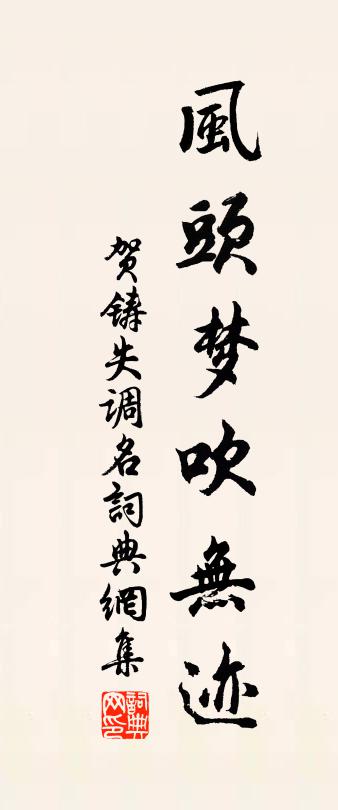 風頭梦吹無迹
贺鑄失调名詞典網集
詞典网印